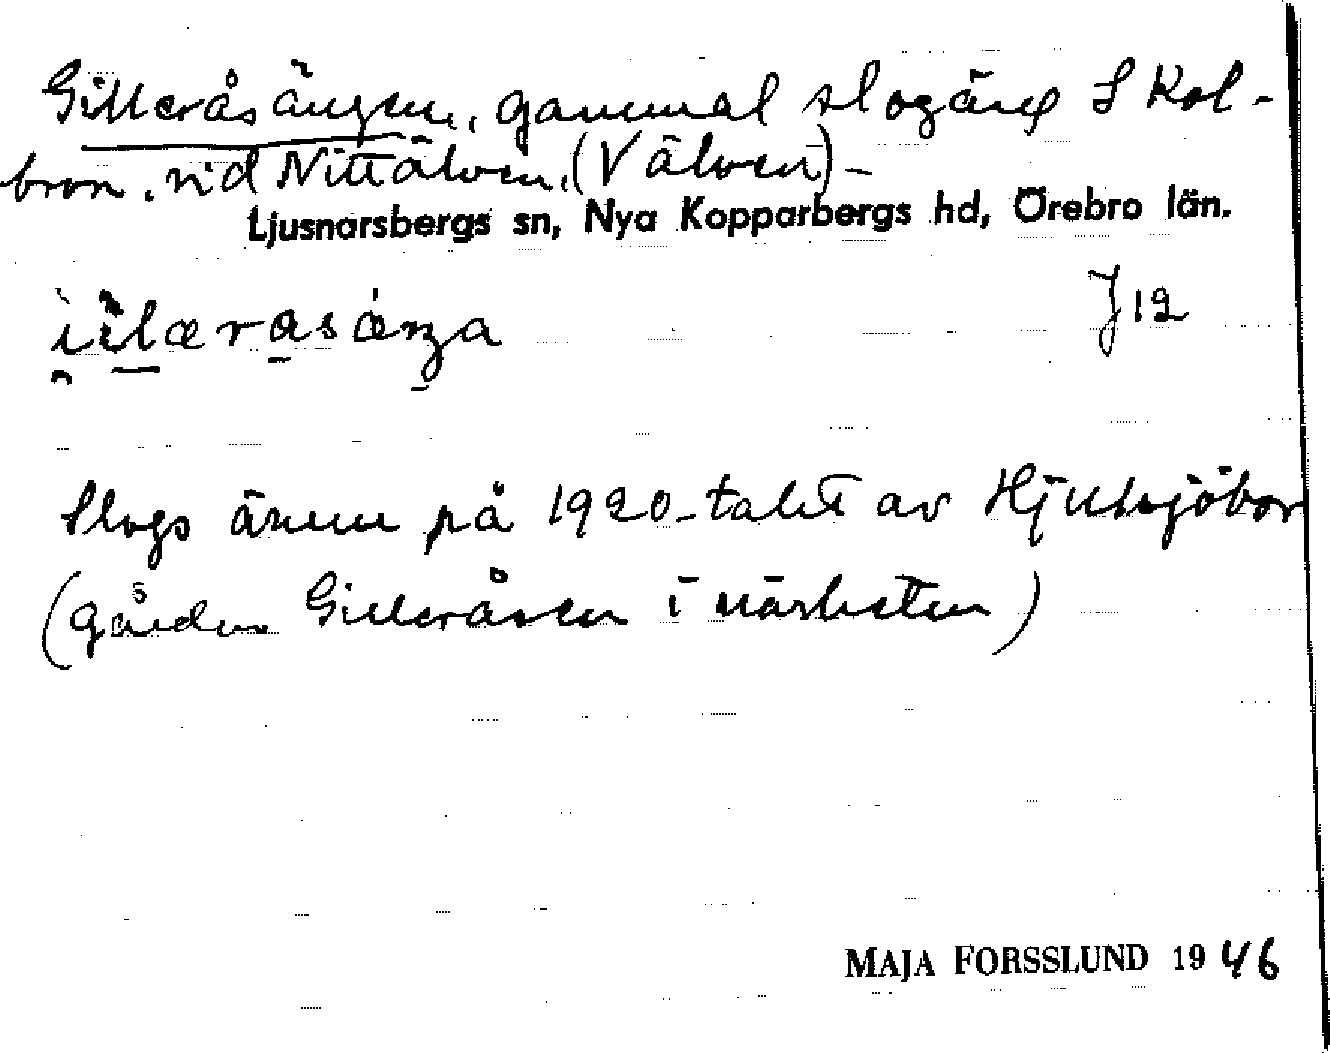 Gilleråsängen, gammal slogäng S Kol-
bron, vid Nittälven, (V älven) -
Ljusnarsbergs sn, Nya Kopparbergs hd, Örebro län.
J 12
Slogs ännu på 1920-talet av Hjulsjöbor
(gården Gilleråsen i närheten)
MAJA FORSSLUND 1946